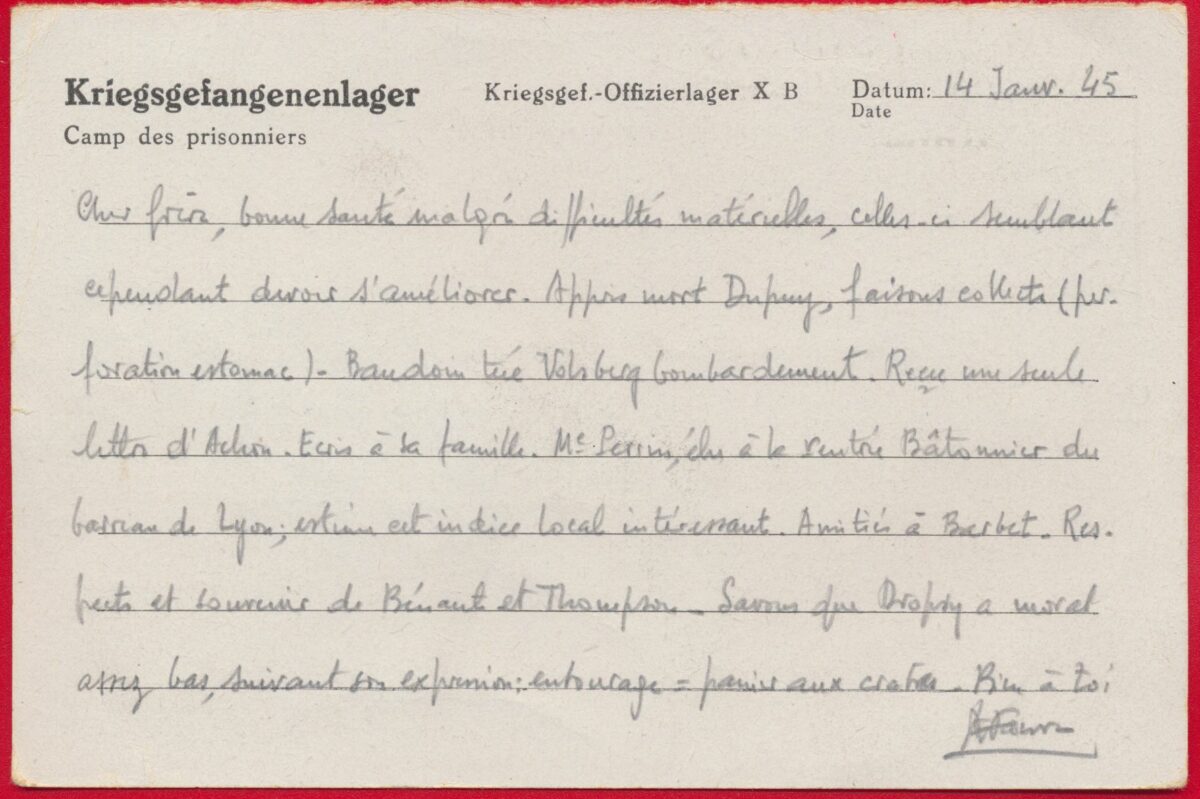 Kriegsgefangenenlager Kriegsgef.-Offizierlager X B Datum: 14 Janv. 45
Camp des prisonniers Date
Cher frère, bonne santé malgré difficultés matérielles, celles-ci semblant
cependant devoir s'améliorer. Appris mort Dupuy, faisons collecte (per-
foration estomac)- Baudoin tué bombardement. Reçu une seule
lettre d'. Ecris à sa famille. Mᵉ Perrin, élu à la rentrée Bâtonnier du
barreau de Lyon; cet indice local intéressant. Amitiés à Barbet. Res-
pects et souvenir de et Thompson - Savons que Dropsy a moral
assez bas, suivant son expression: entourage = panier aux crabes - Bien à toi